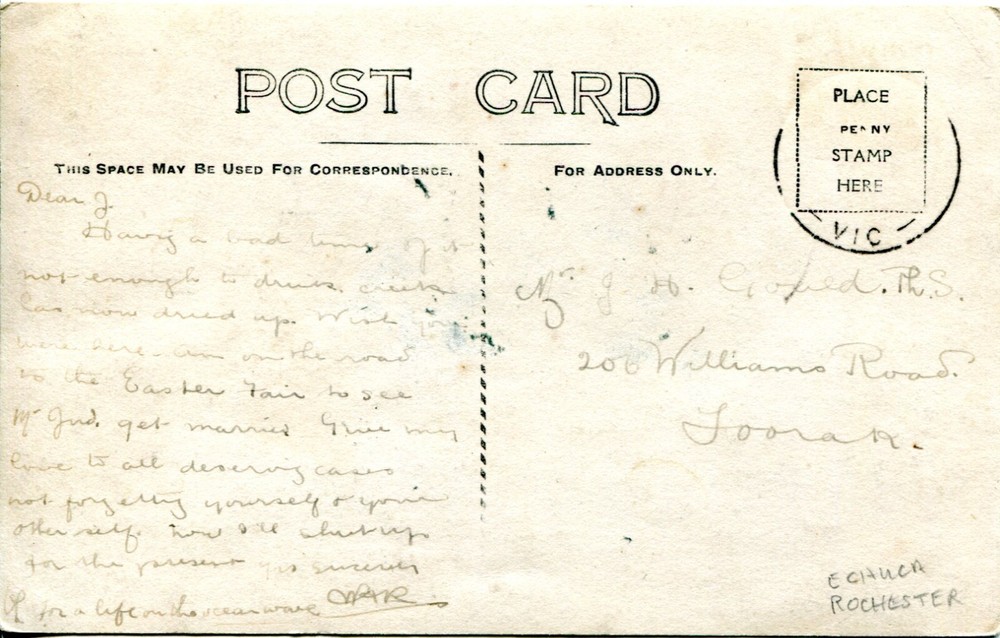 POST CARD
THIS SPACE MAY BE USED FOR CORRESPONDENCE.
FOR ADDRESS ONLY.
PLACE
PENNY
STAMP
HERE
VIC
Dear J.
Having a bad time of it
not enough to drink creek
has now dried up. Wish you
were here. Am on the road
to the Easter Fair to see
Mr Jud. get married Give my
love to all deserving cases
not forgetting yourself & your
other self. now I'll shut up
for the present yrs sincerely
for a life on the ocean wave
Mr. J H. Gould. Th.S.
206 Williams Road.
Toorak.
ECHUCA
ROCHESTER